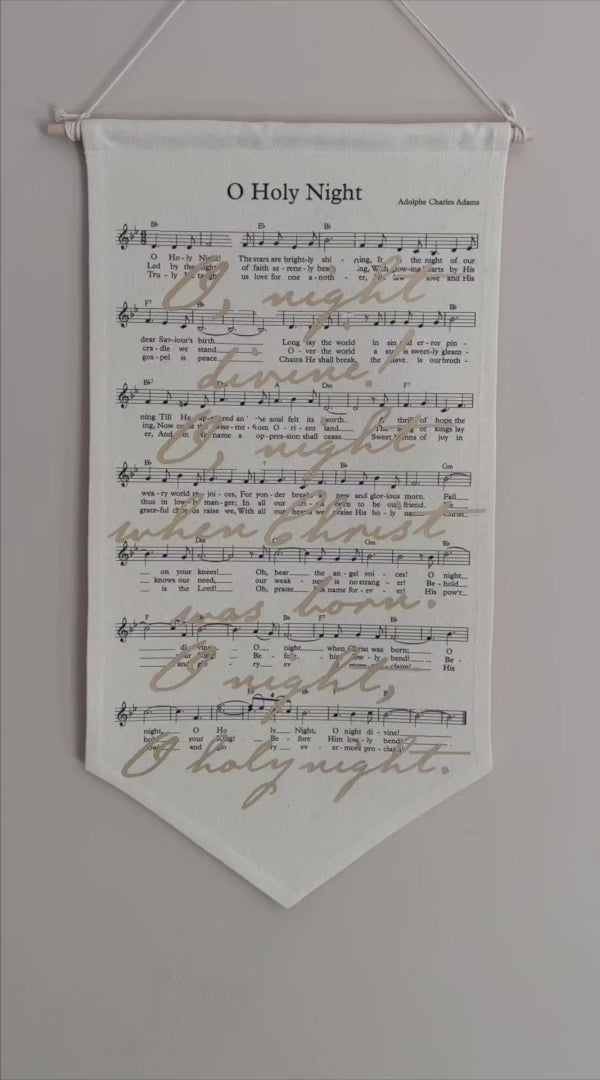 O Holy Night
Adolphe Charles Adams
Bb Eb Bb
O Ho - ly Night! The stars are bright-ly shi - ning, It the night of our
Led by the light of faith se - rene - ly beam ing, With glow-ing hearts by His
Tru - ly He taught us love for one a - noth - er, His law love and His
F7 Bb Bb
dear Sav-iour's birth. Long lay the world in sin and er - ror pin -
cra - dle we stand. O - ver the world a star is sweet-ly gleam -
gos - pel is peace. Chains He shall break, the slave is our broth -
Eb Dm A Dm F7
ning. Till He ap-peared and the soul felt its worth. A thrill of hope the
ing, Now come the wise-men from O - ri - ent land. The King of kings lay
er, And in His name a op - pres-sion shall cease. Sweet hymns of joy in
Bb Bb Gm
wea - ry world re - joi - ces, For yon - der breaks a new and glor-ious morn. Fall
thus in low - ly man - ger; In all our tri - als born to be our friend. He
grate-ful chorus raise we, With all our hearts we praise His ho - ly name. Christ
Dm Cm Gm Bb
on your knees! Oh, hear the an - gel voi - ces! O night
knows our need, our weak - ness is no strang - er! Be - hold
is the Lord! Oh, praise His name for - ev - er! His pow'r
F Bb Eb Bb F7 Bb
di - vine, O night when Christ was born; O
your King! Be - fore him low - ly bend! Be -
and glo - ry ev more pro - claim! His
Eb F7 Bb
night, O Ho ly Night, O night di - vine!
hold your King! Be - fore Him low - ly bend!
pow'r and glo ry ev - er - more pro - claim!
O, night
divine!
O, night
when Christ
was born.
O night,
O holy night.